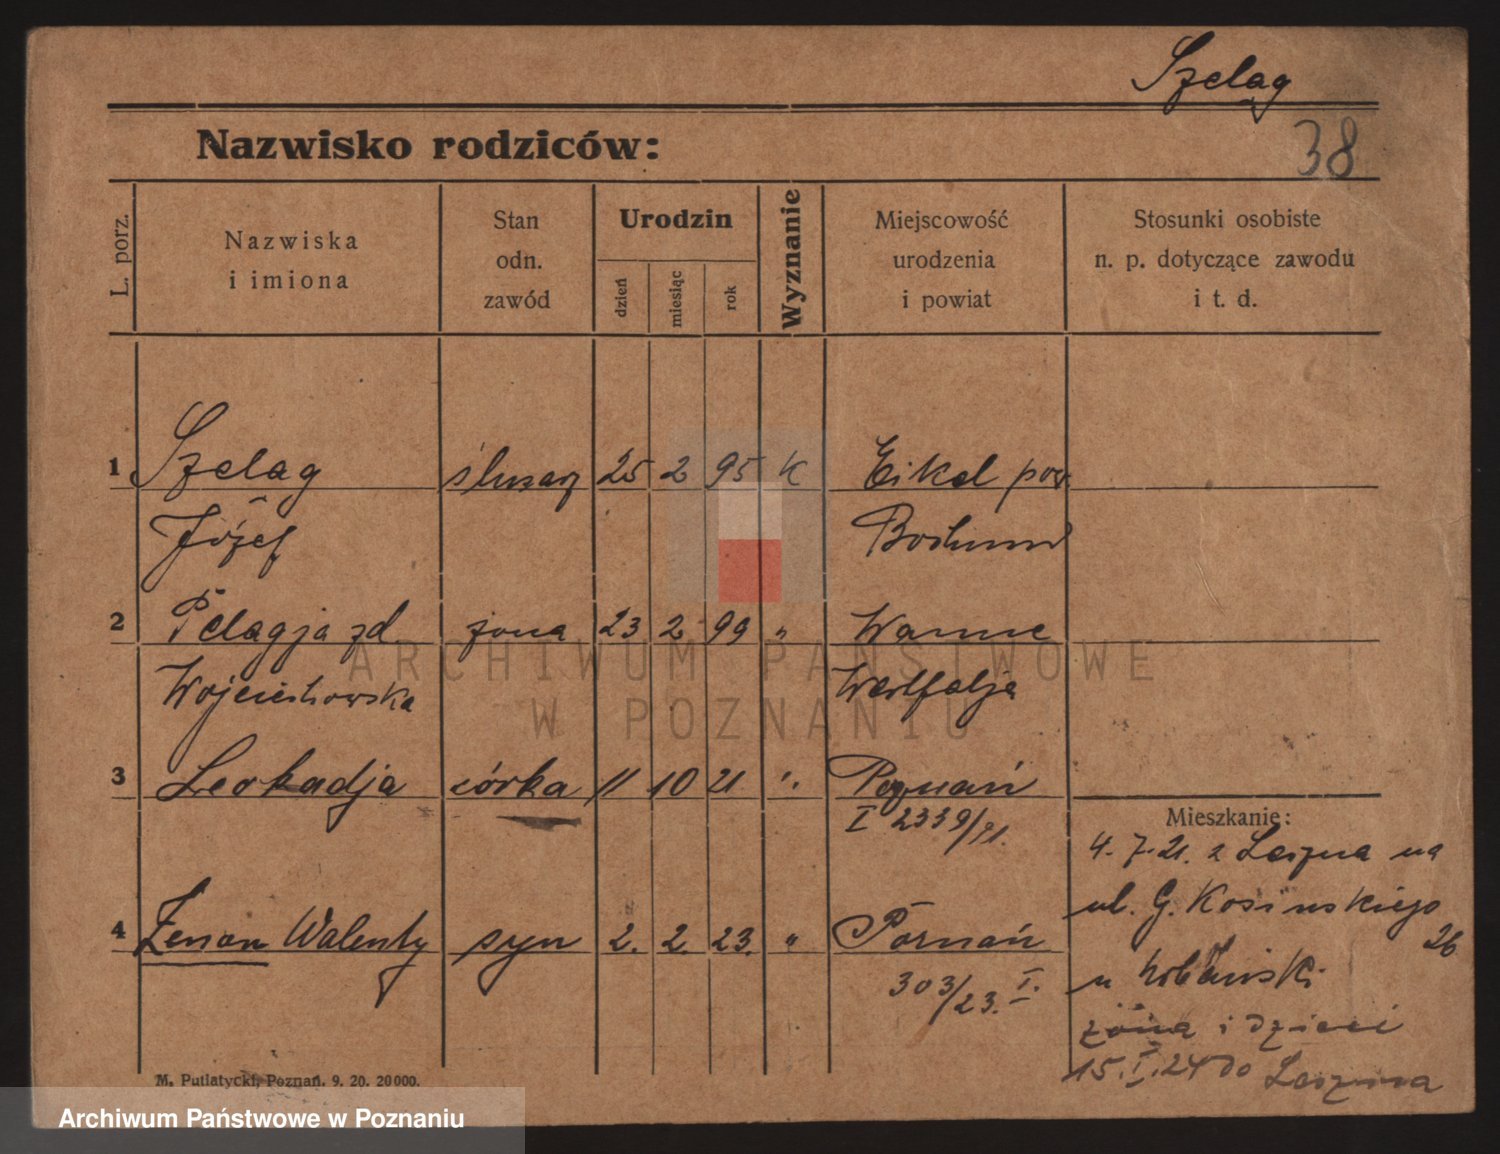 Szeląg
38
Nazwisko rodziców:
L. porz.
Nazwiska
i imiona
Stan
odn.
zawód
Urodzin
dzień
miesiąc
rok
Wyznanie
Miejscowość
urodzenia
i powiat
Stosunki osobiste
n. p. dotyczące zawodu
i t. d.
1 Szeląg ślusarz 25 2 95 K Eikel pow.
Józef Bochum
2 Pelagja zd. żona 23 2 99 „ Wanne
Wojciechowska Westfalja
3 Leokadja córka 11 10 21 „ Poznań
I 2339/21.
Mieszkanie:
4. 7. 21. z Leszna na
ul. G. Kosińskiego
26
4 Zenon Walenty syn 2. 2. 23. „ Poznań
303/23. I.
u
żona i dzieci
15. I. 24 do Leszna
M. Putiatycki, Poznań. 9. 20. 20000.
ARCHIWUM PAŃSTWOWE
W POZNANIU
Archiwum Państwowe w Poznaniu